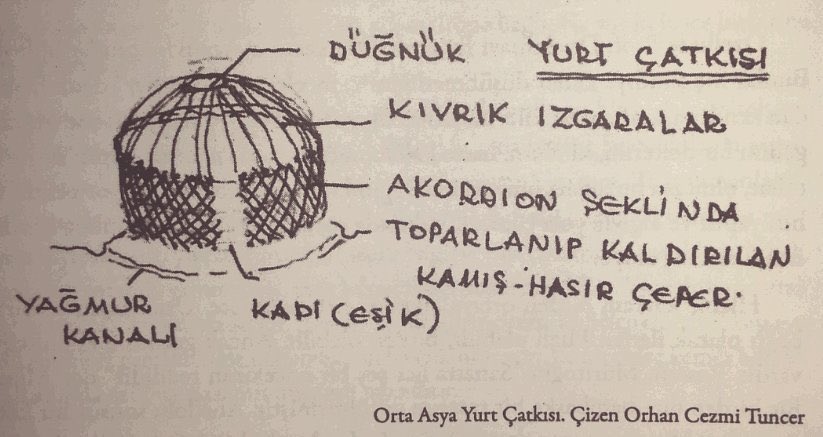 DÜĞNÜK
YURT ÇATKISI
KIVRIK IZGARALAR
AKORDION ŞEKLİNDA
TOPARLANIP KALDIRILAN
KAMIŞ-HASIR ÇEPER.
YAĞMUR
KANALİ
KAPI (EŞİK)
Orta Asya Yurt Çatkısı. Çizen Orhan Cezmi Tuncer